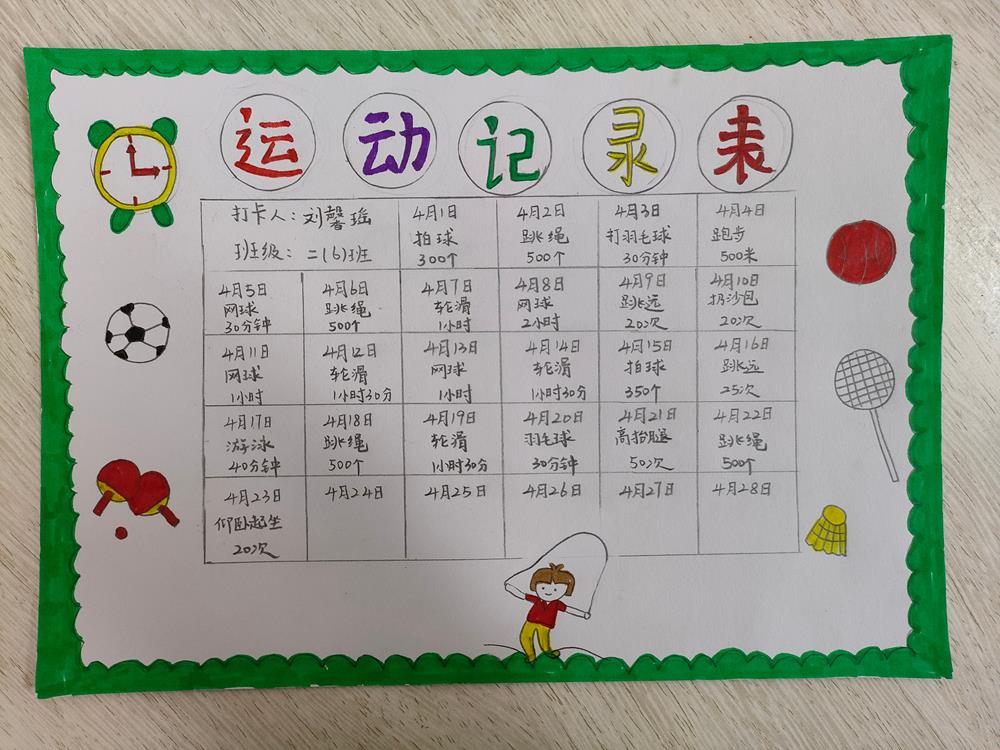 运动记录表
打卡人：刘馨瑶
班级：二(6)班
4月1日
拍球
300个
4月2日
跳绳
500个
4月3日
打羽毛球
30分钟
4月4日
跑步
500米
4月5日
网球
30分钟
4月6日
跳绳
500个
4月7日
轮滑
1小时
4月8日
网球
2小时
4月9日
跳远
20次
4月10日
扔沙包
20次
4月11日
网球
1小时
4月12日
轮滑
1小时30分
4月13日
网球
1小时
4月14日
轮滑
1小时30分
4月15日
拍球
350个
4月16日
跳远
25次
4月17日
游泳
40分钟
4月18日
跳绳
500个
4月19日
轮滑
1小时30分
4月20日
羽毛球
30分钟
4月21日
高抬腿
50次
4月22日
跳绳
500个
4月23日
仰卧起坐
20次
4月24日
4月25日
4月26日
4月27日
4月28日